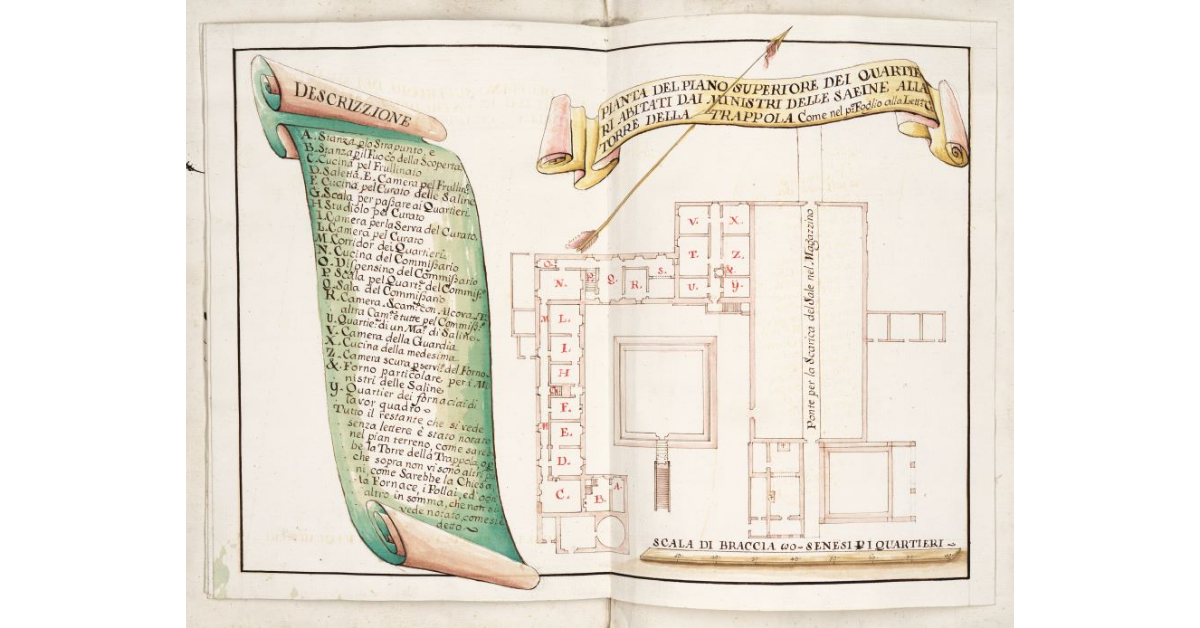 DESCRIZZIONE
A. Stanza p lo Strapunto, e
B. Stanza p il Fuoco della Scoperta
C. Cucina pel Frullinato
D. Saletta. E. Camera pel Frullin.
F. Cucina pel Curato delle Saline
G. Scala per passare ai Quartieri
H. Studiolo pel Curato
I. Camera per la Serva del Curato,
L. Camera pel Curato
M. Corridor dei Quartieri
N. Cucina del Commissario
O. Dispensino del Commissario
P. Scala pel Quart. del Commiss.
Q. Sala del Commissario
R. Camera. S. Cam. con Alcova. T.
altra Cam. e tutte pel Commiss.
U. Quartie. di un Ma. di Salino.
V. Camera della Guardia
X. Cucina della medesima
Z. Camera scura p servi. del Forno
&. Forno particolare per i Mi
nistri delle Saline
Y. Quartier dei fornaciai di
lavor quadro
Tutto il restante che si vede
senza lettere è stato notato
nel pian terreno, come sareb
be la Torre della Trappola,
che sopra non vi sono altri
ni, come Sarebbe la Chiesa
la Fornace, i Pollai, ed
altro in somma, che non si
vede notato, come si è
detto
PIANTA DEL PIANO SUPERIORE DEI QUARTIE
RI ABITATI DAI MINISTRI DELLE SALINE ALLA
TORRE DELLA TRAPPOLA Come nel p. Foglio alla Lett. C
V. X.
T. Z.
&
U. Y.
O.
N. P. Q. R. S.
M L.
I.
H
G
F.
M E.
D.
C. B. A.
Ponte per la Scarica del Sale nel Magazzino
SCALA DI BRACCIA 60 SENESI P I QUARTIERI